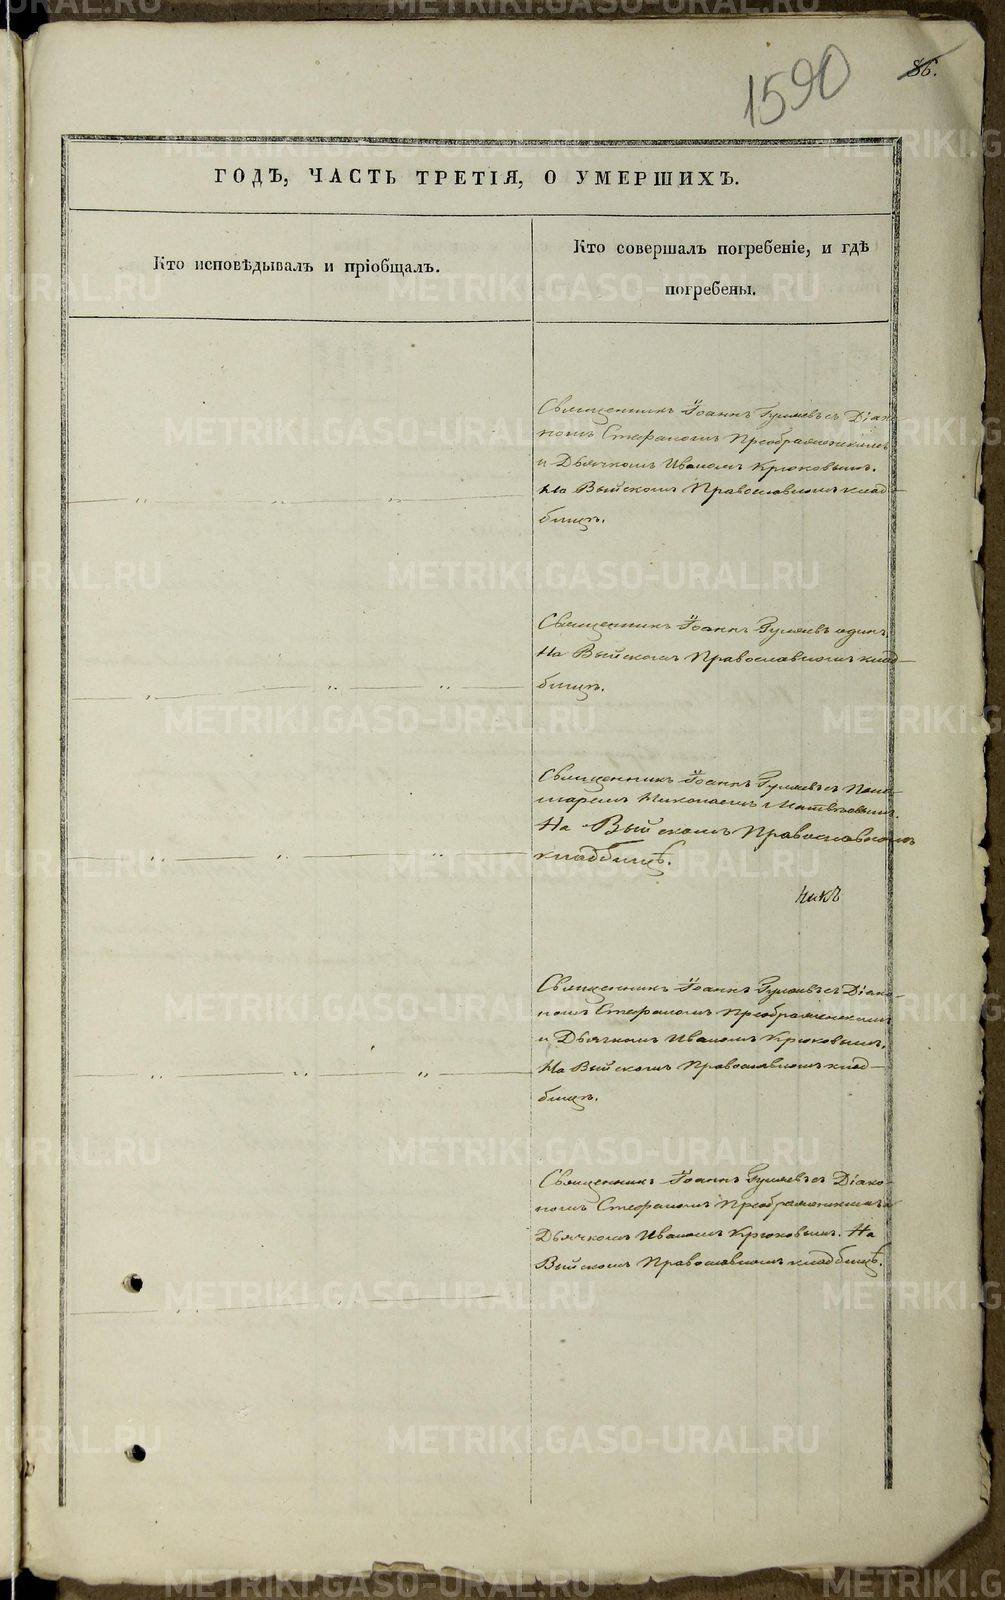 1590
86.
ГОДЪ, ЧАСТЬ ТРЕТІЯ, О УМЕРШИХЪ.
Кто исповѣдывалъ и пріобщалъ.
Кто совершалъ погребеніе, и гдѣ
погребены.
Священникъ Іоаннъ Гуляевъ съ Діако-
номъ Стефаномъ Преображенскимъ
и Дьячкомъ Иваномъ Крюковымъ.
На Выйскомъ Православномъ клад-
бищѣ.
Священникъ Іоаннъ Гуляевъ одинъ,
На Выйскомъ Православномъ клад-
бищѣ.
Священникъ Іоаннъ Гуляевъ съ Поно-
маремъ Николаемъ Матвѣевымъ.
На Выйскомъ Православномъ
кладбищѣ.
Священникъ Іоаннъ Гуляевъ съ Діако-
номъ Стефаномъ Преображенскимъ
и Дьячкомъ Иваномъ Крюковымъ.
На Выйскомъ Православномъ клад-
бищѣ.
Священникъ Іоаннъ Гуляевъ съ Діако-
номъ Стефаномъ Преображенскимъ и
Дьячкомъ Иваномъ Крюковымъ. На
Выйскомъ Православномъ кладбищѣ.
METRIKI.GASO-URAL.RU